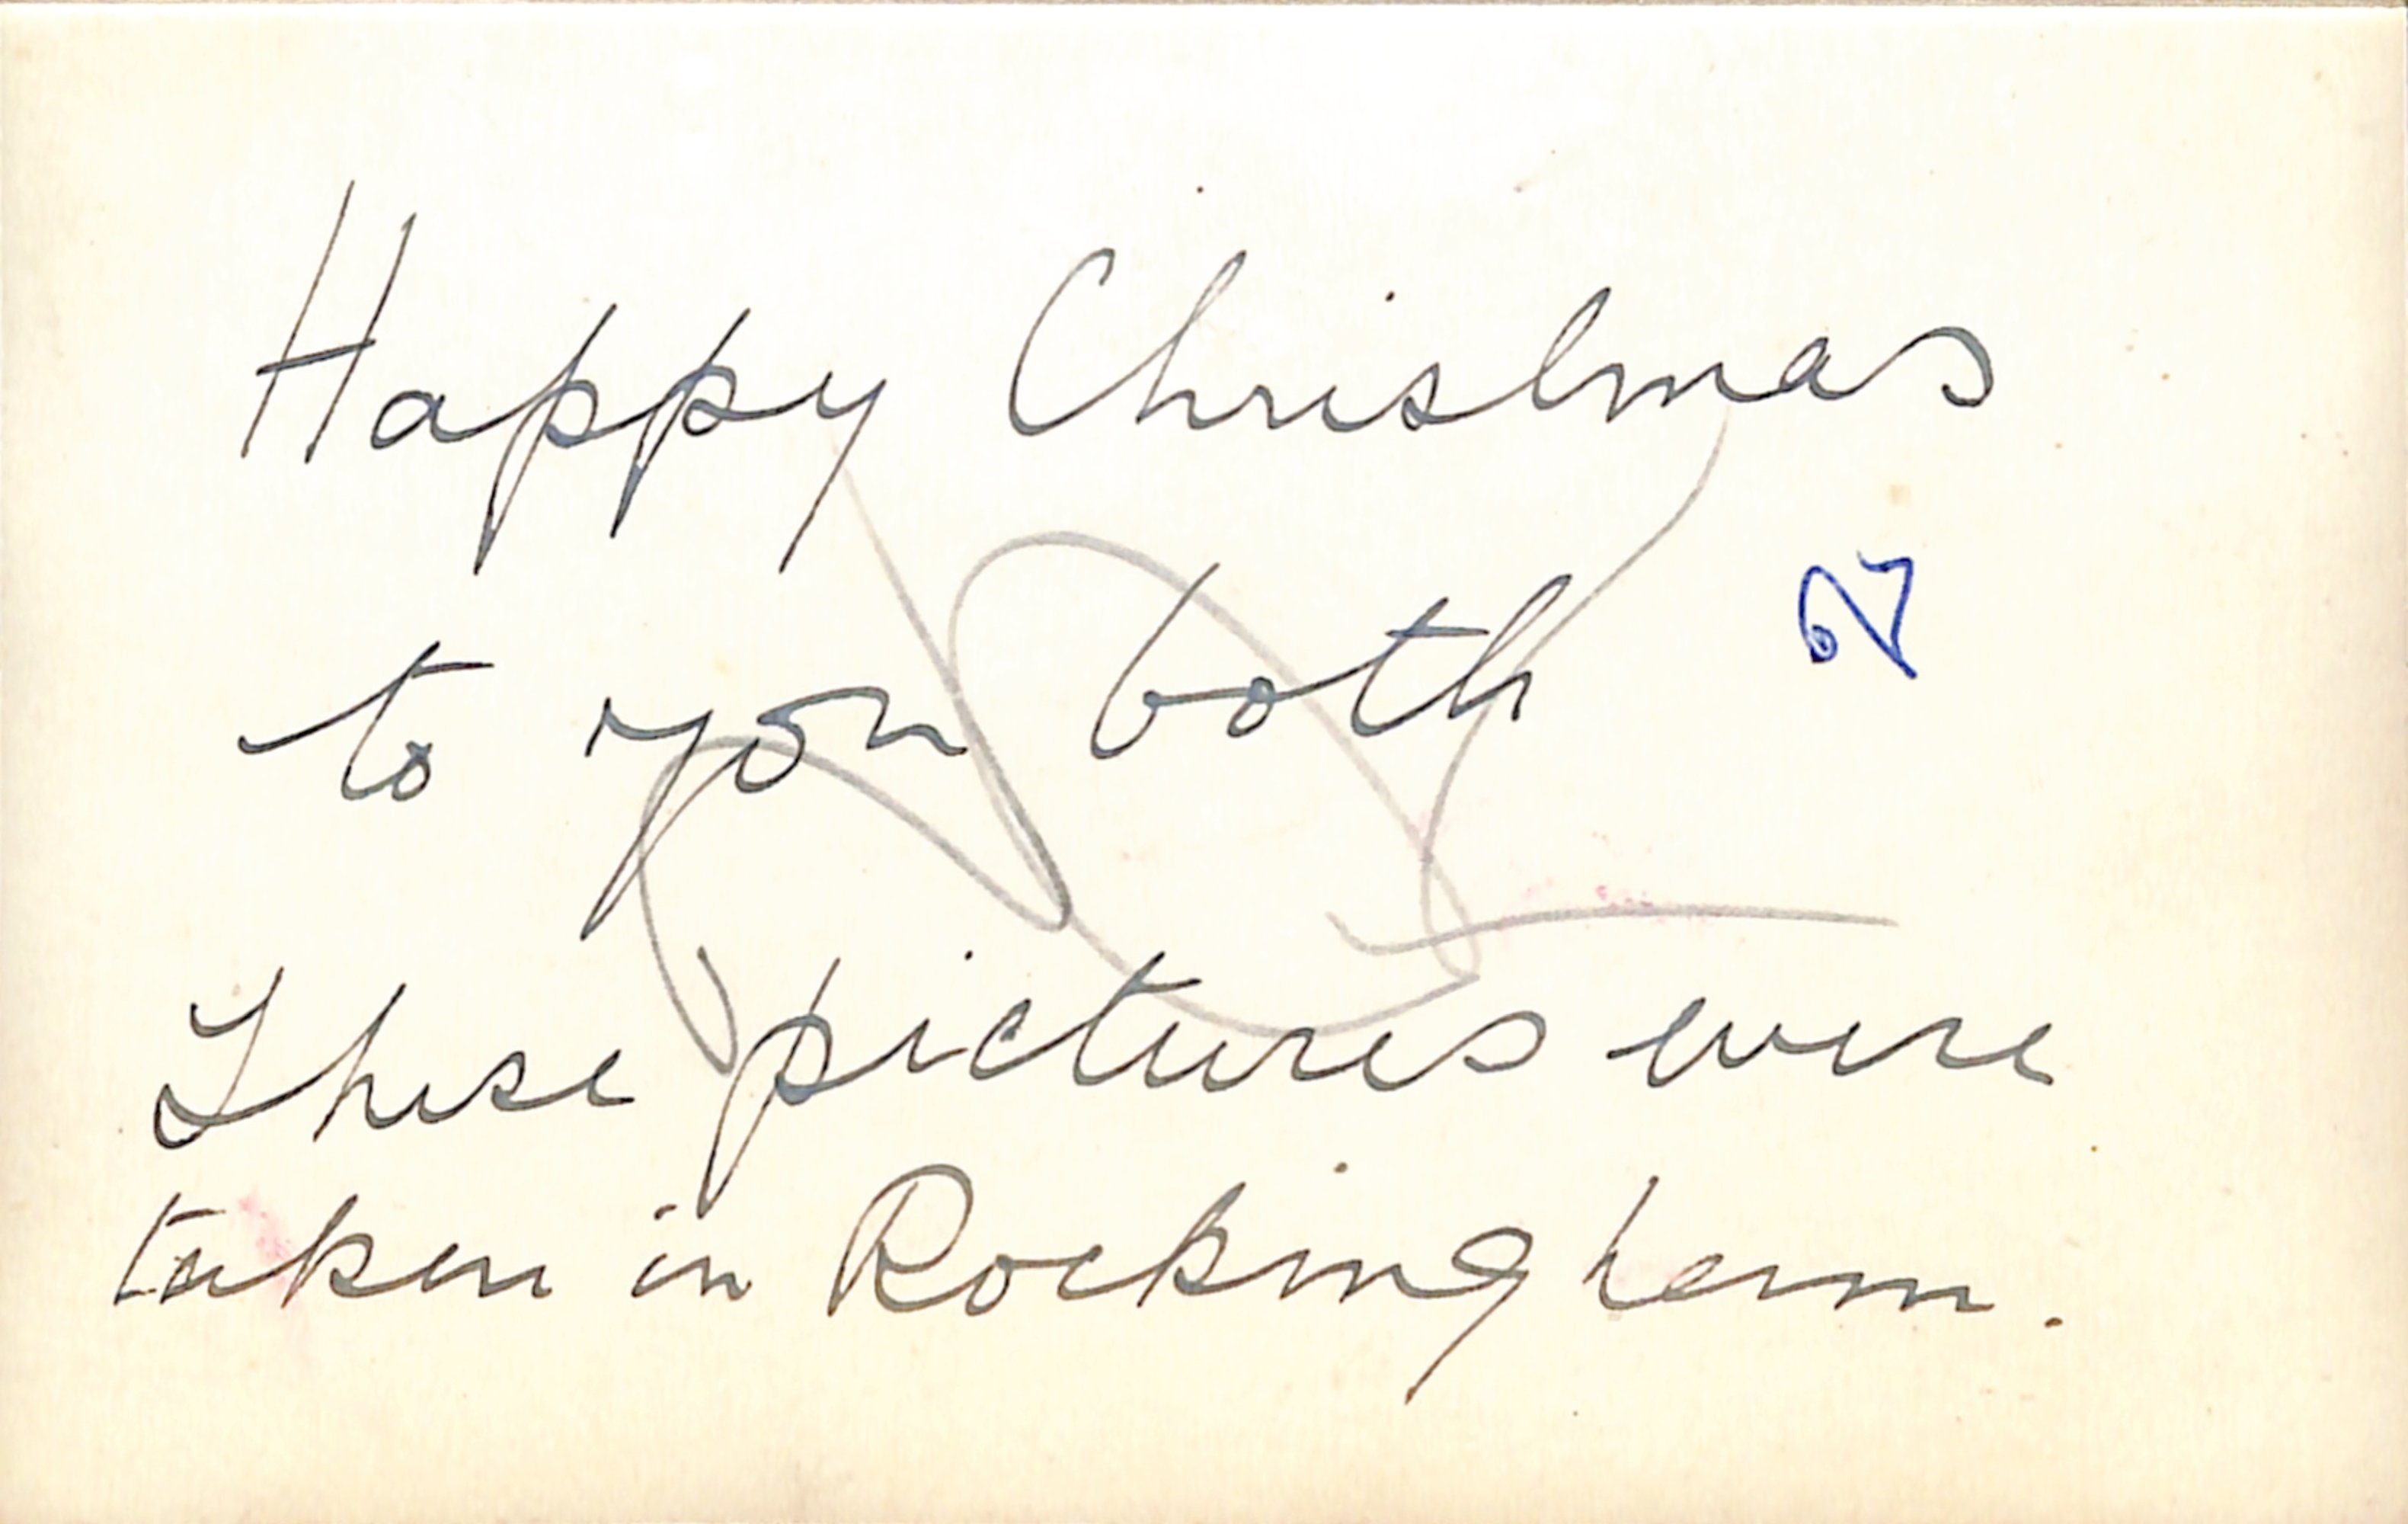 Happy Christmas
to you both
These pictures were
taken in Rockingham.